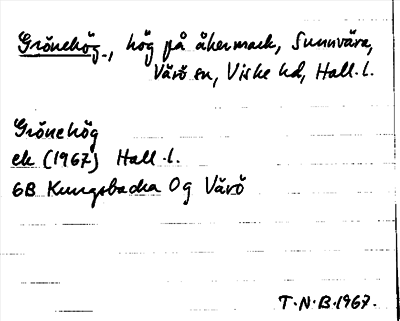 Grönehög., hög på åkermark, Sunnvära,
Värö sn, Viske hd, Hall. l.
Grönehög
ek (1967) Hall. l.
6B Kungsbacka Og Värö
T.N.B. 1967.